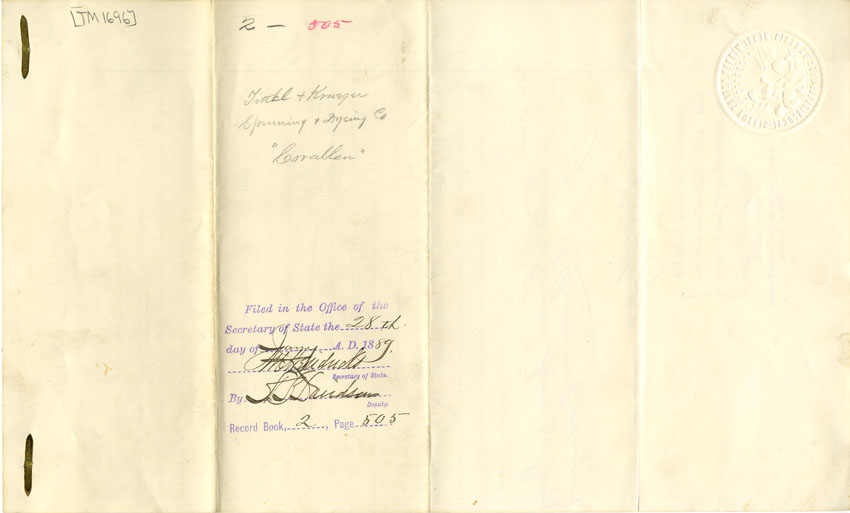 [TM1696]
2 - 505
& Krueger
Spinning & Dyeing Co
"Corallen"
Filed in the Office of the
Secretary of State the 28th
day of June A. D. 1889.
Secretary of State.
By Davidson
Deputy.
Record Book, 2, Page 505